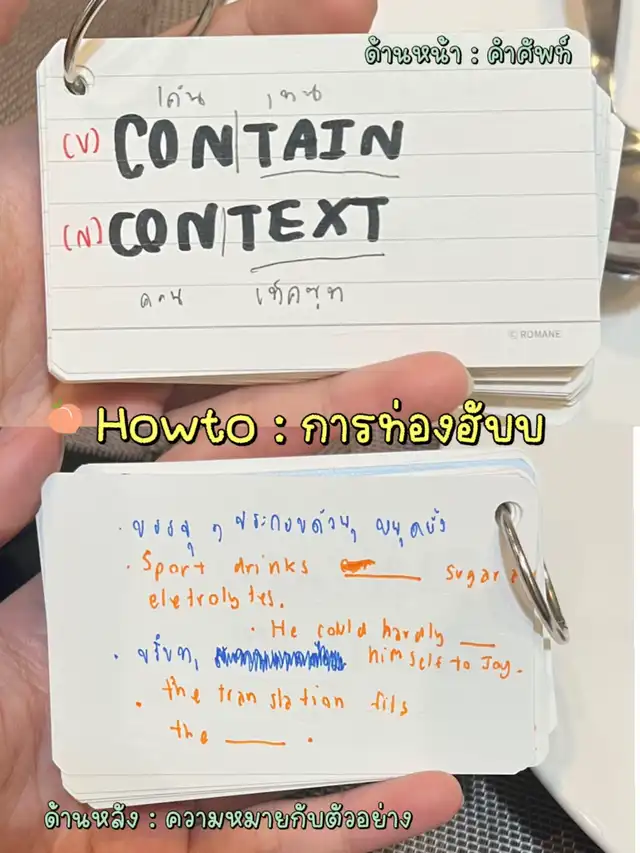 ด้านหน้า : คำศัพท์
เค่น เทน
(V) CON|TAIN
(N) CON|TEXT
คอน เท็คซฺท
© ROMANE
Howto : การท่องฮับบ
· บรรจุ, ประกอบด้วย, หยุดยั้ง
· Sport drinks ____ sugar
eletrolytes.
· He could hardly ____
· บริบท, himself to Joy.
· the translation fits
the ____ .
ด้านหลัง : ความหมายกับตัวอย่าง